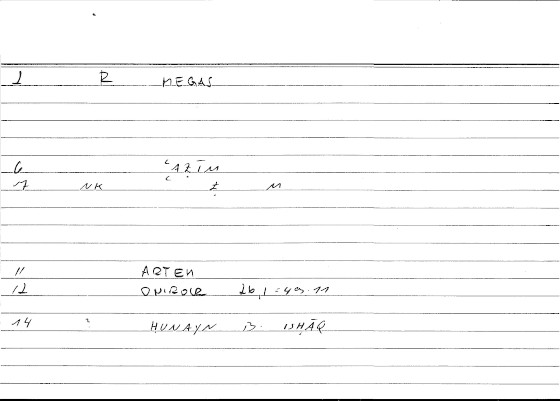 1 R MEGAS
6 ʿAẒĪM
7 NK ʿ Ẓ M
11 ARTEM
12 ONIROCR 26,1 = 49.11
14 ² HUNAYN B. ISḤĀQ